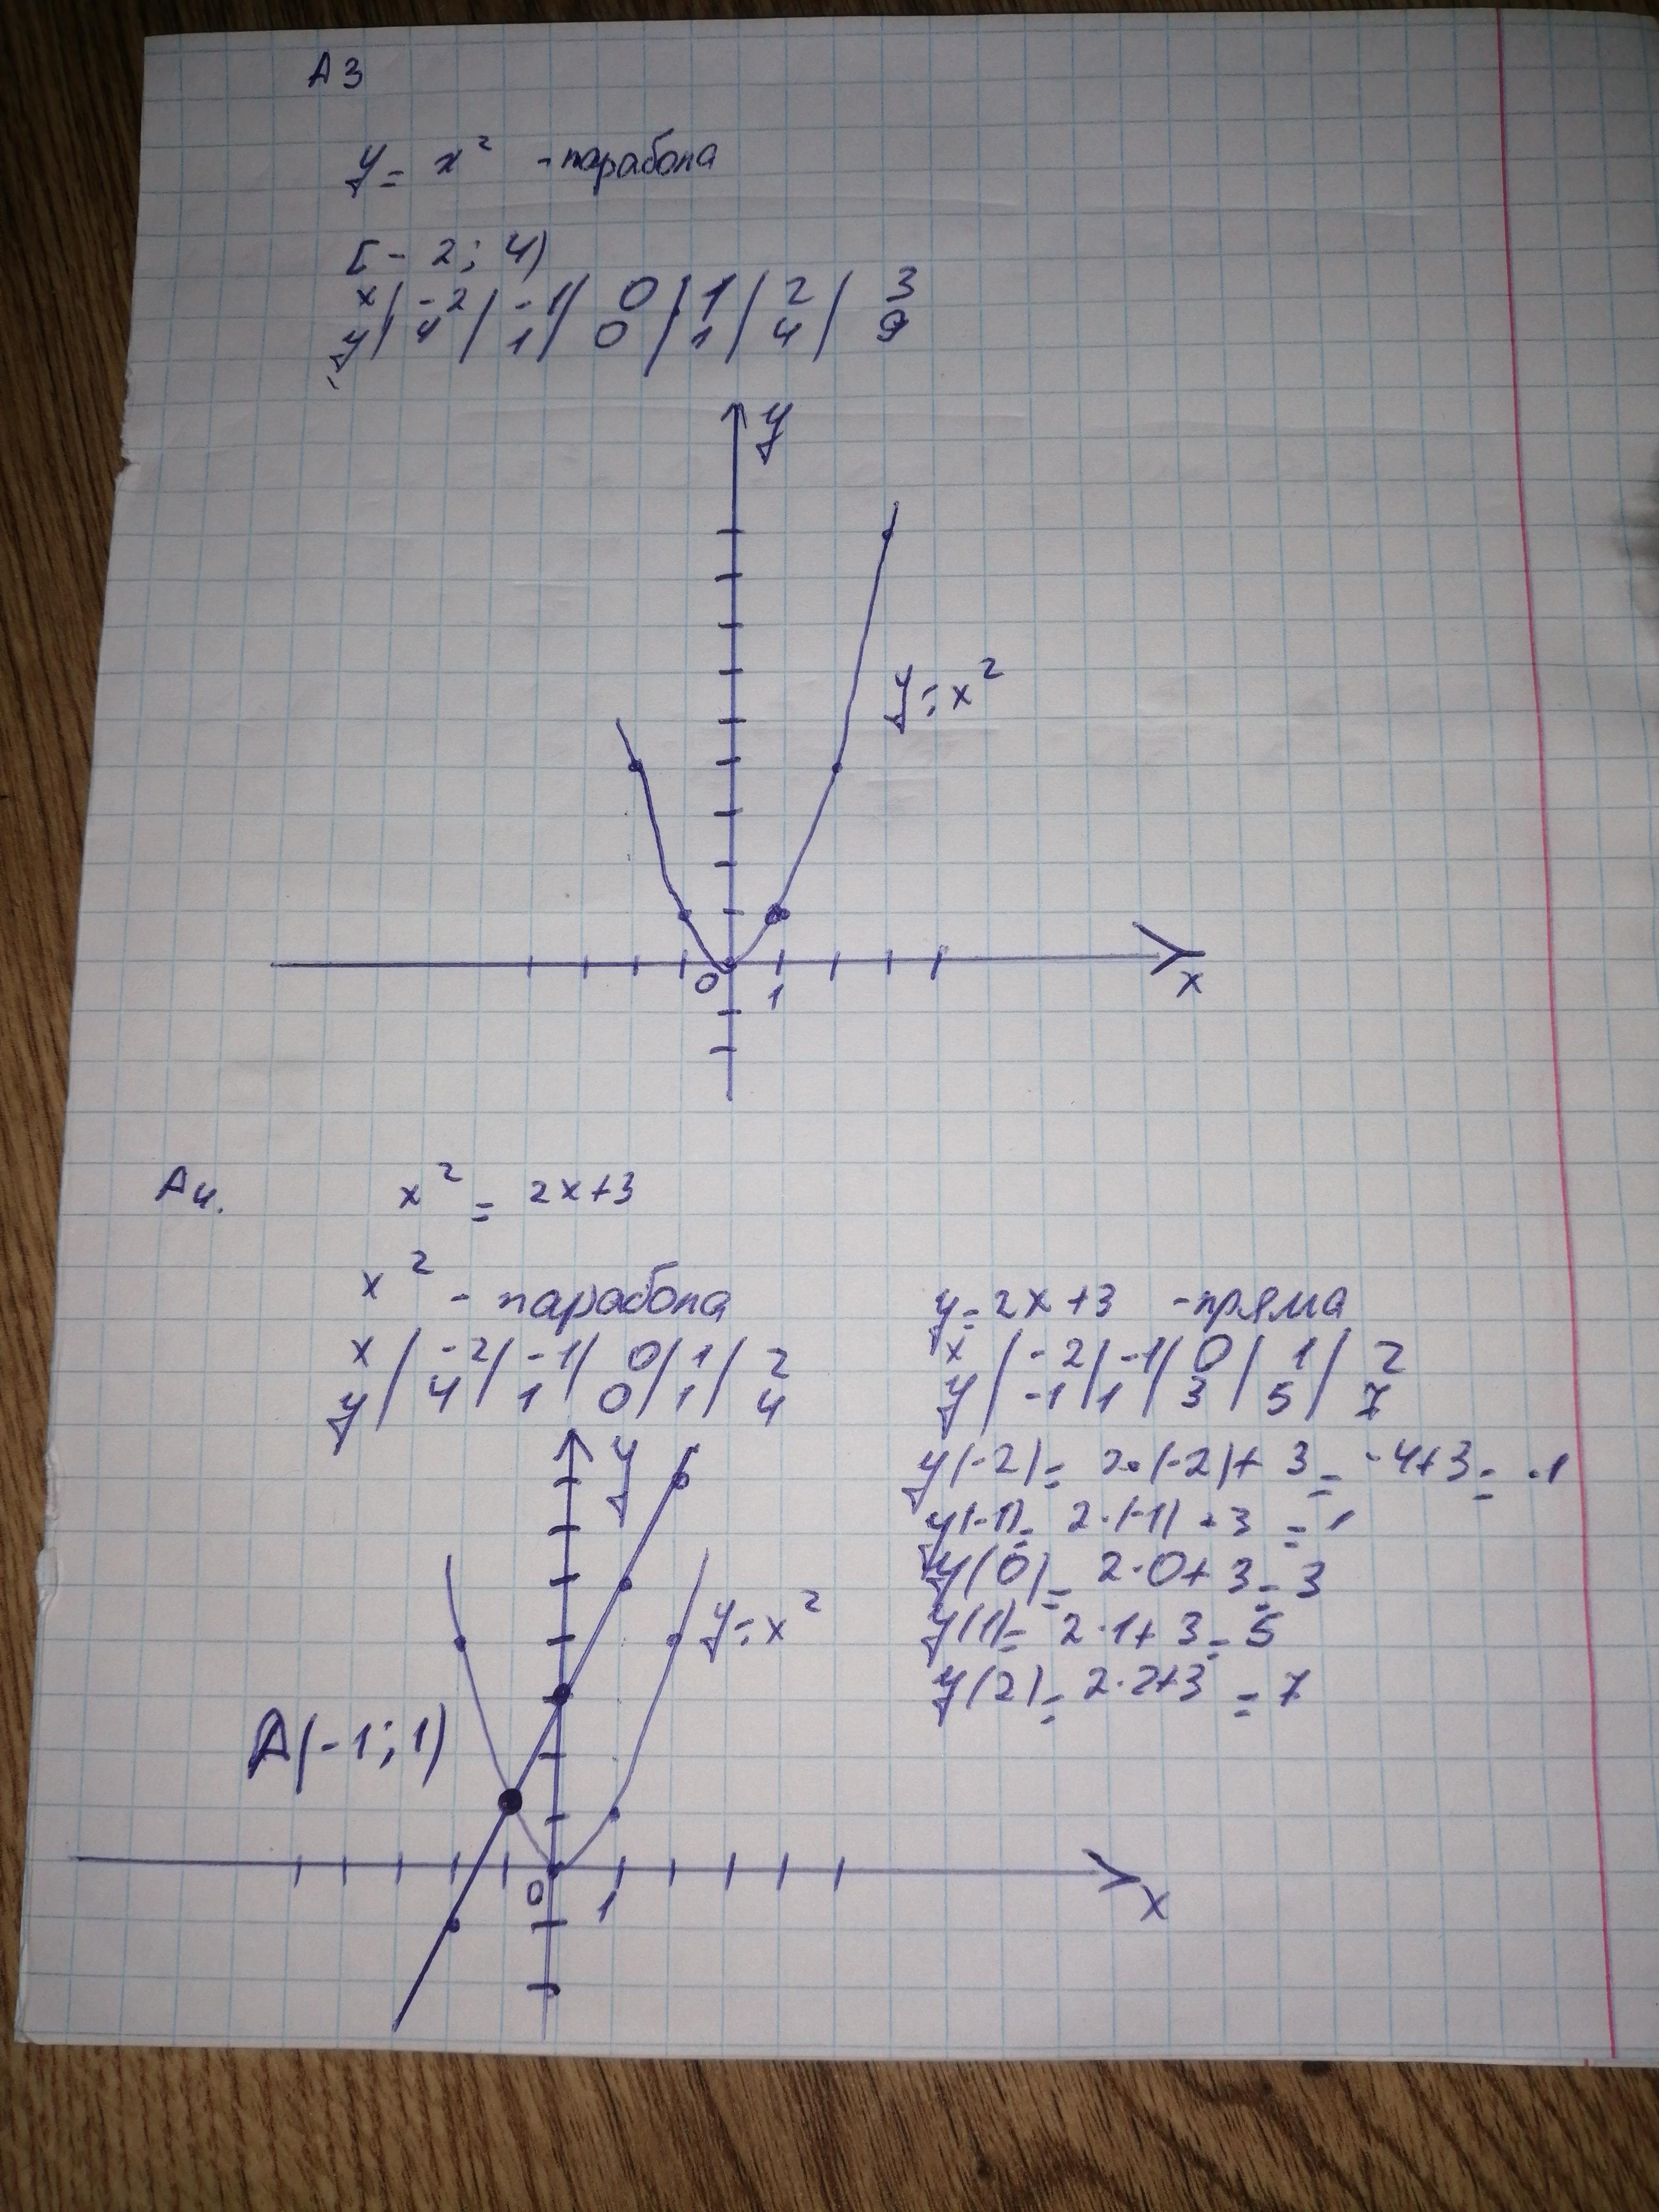 А3
y = x² - парабола
[- 2; 4)
x | -2 | -1 | 0 | 1 | 2 | 3
y | 4 | 1 | 0 | 1 | 4 | 9
y
y = x²
0
1
x
А4.
x² = 2x+3
x² - парабола
x | -2 | -1 | 0 | 1 | 2
y | 4 | 1 | 0 | 1 | 4
y = 2x +3 - пряма
x | -2 | -1 | 0 | 1 | 2
y | -1 | 1 | 3 | 5 | 7
y(-2) = 2·(-2)+ 3 = -4+3 = -1
y(-1) = 2·(-1) +3 = 1
y(0) = 2·0+ 3 = 3
y(1) = 2·1+ 3 = 5
y(2) = 2·2+3 = 7
y
y = x²
A(-1; 1)
0
1
x